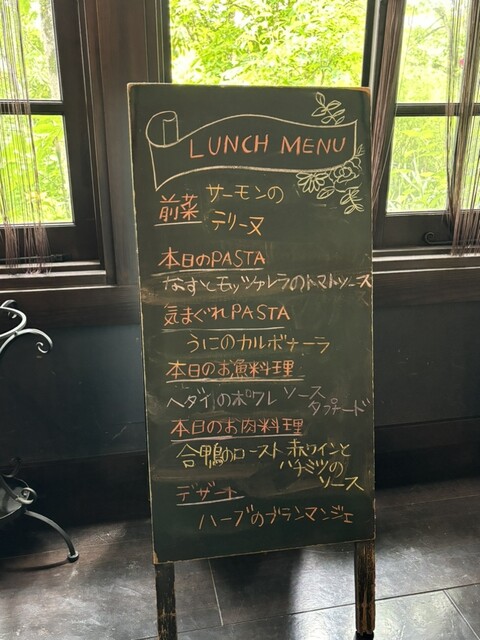 LUNCH MENU
前菜 サーモンの
テリーヌ
本日のPASTA
なすとモッツァレラのトマトソース
気まぐれPASTA
うにのカルボナーラ
本日のお魚料理
ヘダイのポワレ ソース
タプナード
本日のお肉料理
合鴨のロースト 赤ワインと
ハチミツの
ソース
デザート
ハーブのブランマンジェ